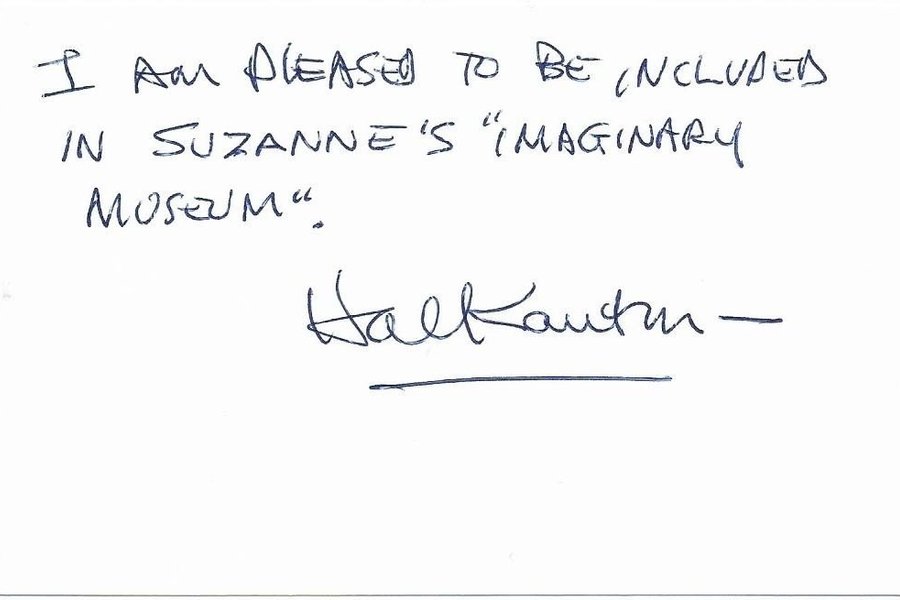 I AM PLEASED TO BE INCLUDED
IN SUZANNE'S "IMAGINARY
MUSEUM".
Hal Kanter